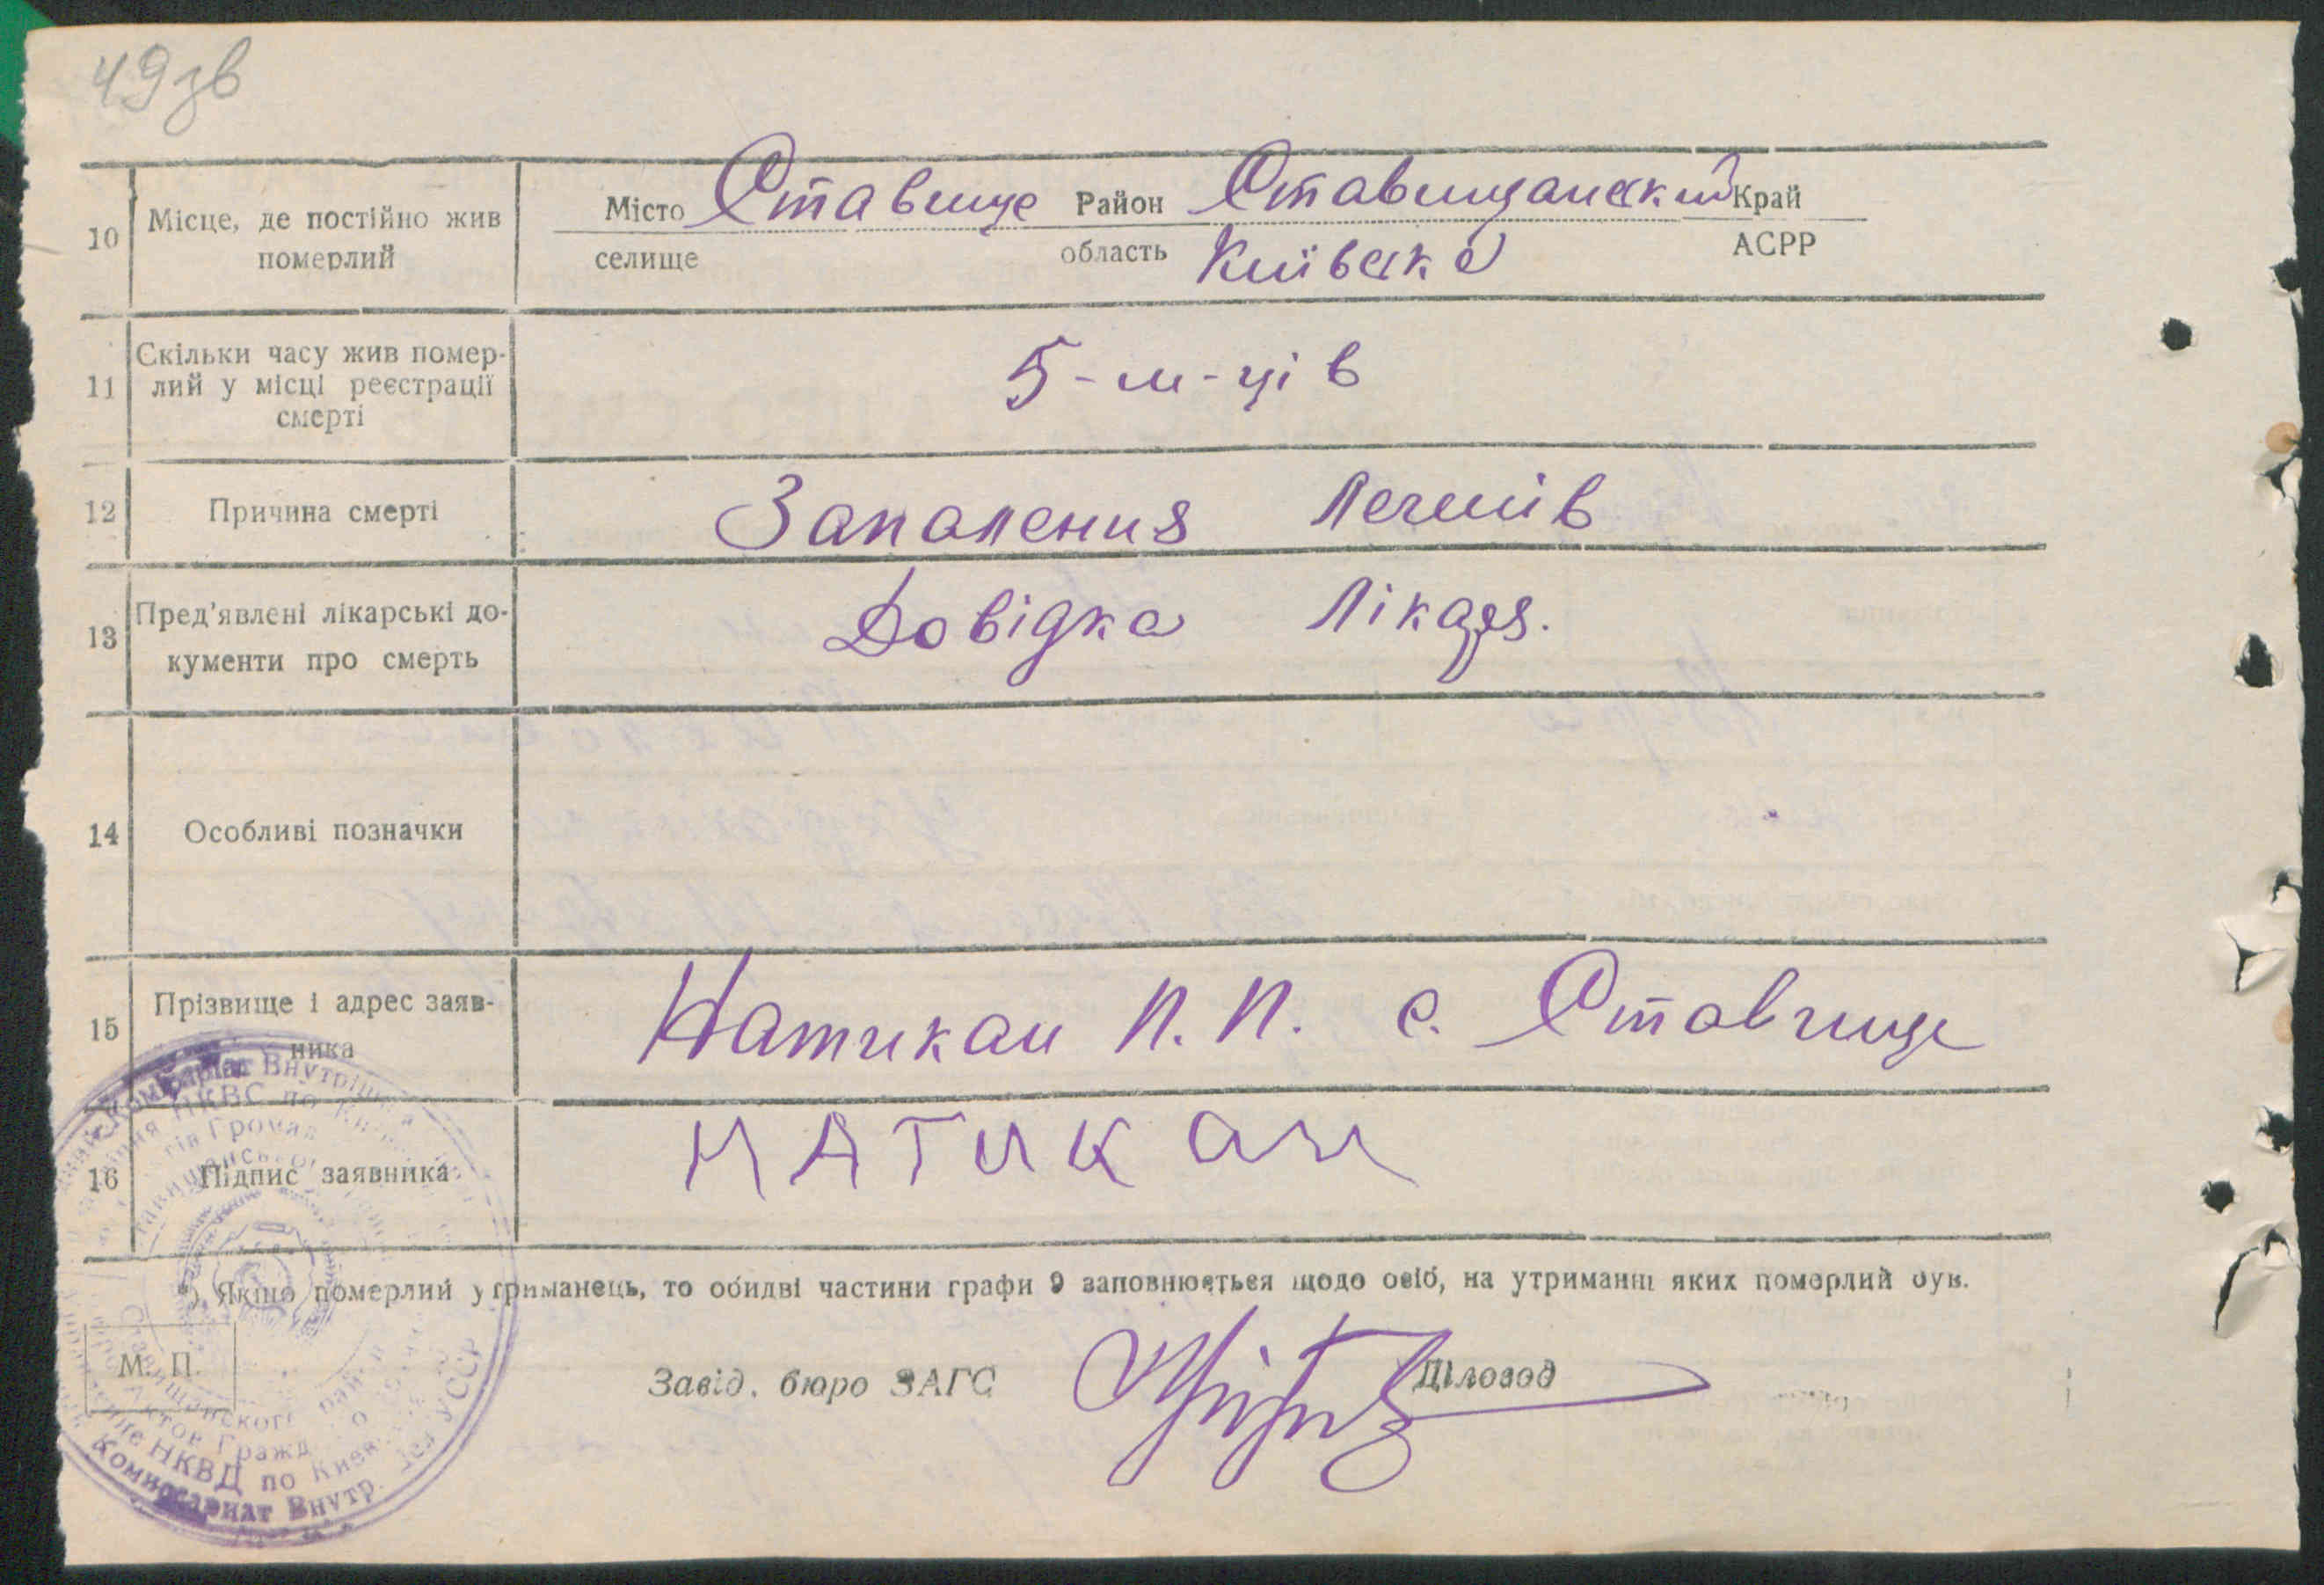 49зв
10 Місце, де постійно жив померлий
Місто Ставище Район Ставищанский Край
селище область Київска АСРР
11 Скільки часу жив помер-
лий у місці реєстрації
смерті
5-м-ців
12 Причина смерті Запалення Легенів
13 Пред'явлені лікарські до-
кументи про смерть
Довідка Лікаря.
14 Особливі позначки
15 Прізвище і адрес заяв-
ника
Натикан П.П. с. Ставище
16 Підпис заявника НАТИКАН
*) Якщо померлий утриманець, то обидві частини графи 9 заповнюється щодо осіб, на утриманні яких померлий був.
М. П.
Завід. бюро ЗАГС Діловод
Комісаріат Внутрішн
НКВС по
Ставищанского
Актов Гражд
НКВД по Киев
Комиссариат Внутр. Дел УССР